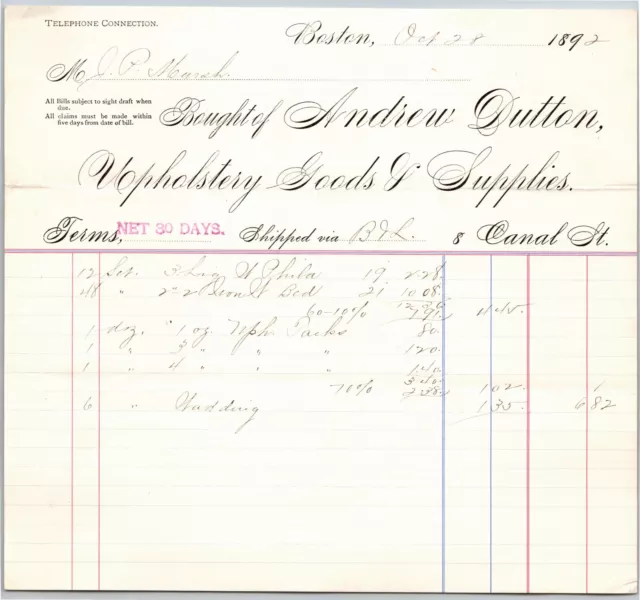 TELEPHONE CONNECTION.
Boston, Oct 28 1892
M J. P. Marsh
All Bills subject to sight draft when due.
All claims must be made within five days from date of bill.
Bought of Andrew Dutton,
Upholstery Goods & Supplies.
Terms, NET 30 DAYS. Shipped via B & L. 8 Canal St.
12 Set 3 W Phila 19 2 28
48 " 2 Bed 21 10 08
60-10% 12 36
7 91 4 45
1 doz. " 1 oz. Uph. Tacks 80
1 " 3 " " " 1 20
1 " 4 " " " 1 40
3 40
70% 2 38 1 02
6 " Wadding 1 35 6 82